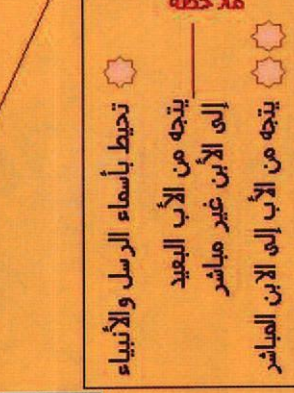 ملاحظة
يتجه من الأب إلى الابن المباشر
يتجه من الأب البعيد
إلى الأبن غير مباشر
تحيط بأسماء الرسل والأنبياء